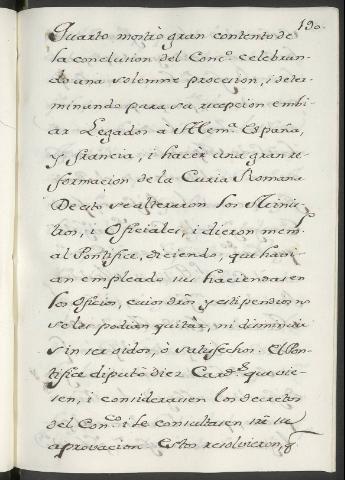 190.
Quarto mostrò gran contento de
la conclusion del Conc.º celebran-
do una solemne procesion, i deter-
minando para su recepcion embi-
ar Legados à Alem.ª España,
y Francia, i hacer una gran re-
formacion de la Curia Romana
De esto se alteraron los Minis-
tros, i Oficiales, i dieron mem.º
al Pontifice, diciendo, que havi-
an empleado sus haciendas en
los Oficios, cuios dros, y estipendios no
se les podian quitar, ni disminuir
sin ser oidos, ò satisfechos. El Pon-
tifice diputò diez Card.s que vie-
sen, i considerasen los decretos
del Con.co i le consultasen sre su
aprovacion Estos resolvieron, q